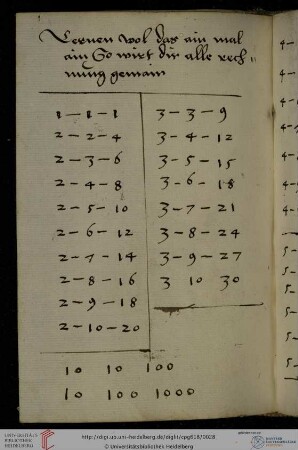 1
Lernen wol das ain mal
ain So wirt dir alle rech=
nung gemain
1 - 1 - 1
2 - 2 - 4
2 - 3 - 6
2 - 4 - 8
2 - 5 - 10
2 - 6 - 12
2 - 7 - 14
2 - 8 - 16
2 - 9 - 18
2 - 10 - 20
3 - 3 - 9
3 - 4 - 12
3 - 5 - 15
3 - 6 - 18
3 - 7 - 21
3 - 8 - 24
3 - 9 - 27
3 10 30
10 10 100
10 100 1000
4 -
4 -
4 -
4 -
4 -
UNIVERSITÄTS-
BIBLIOTHEK
HEIDELBERG
© Universitätsbibliothek Heidelberg